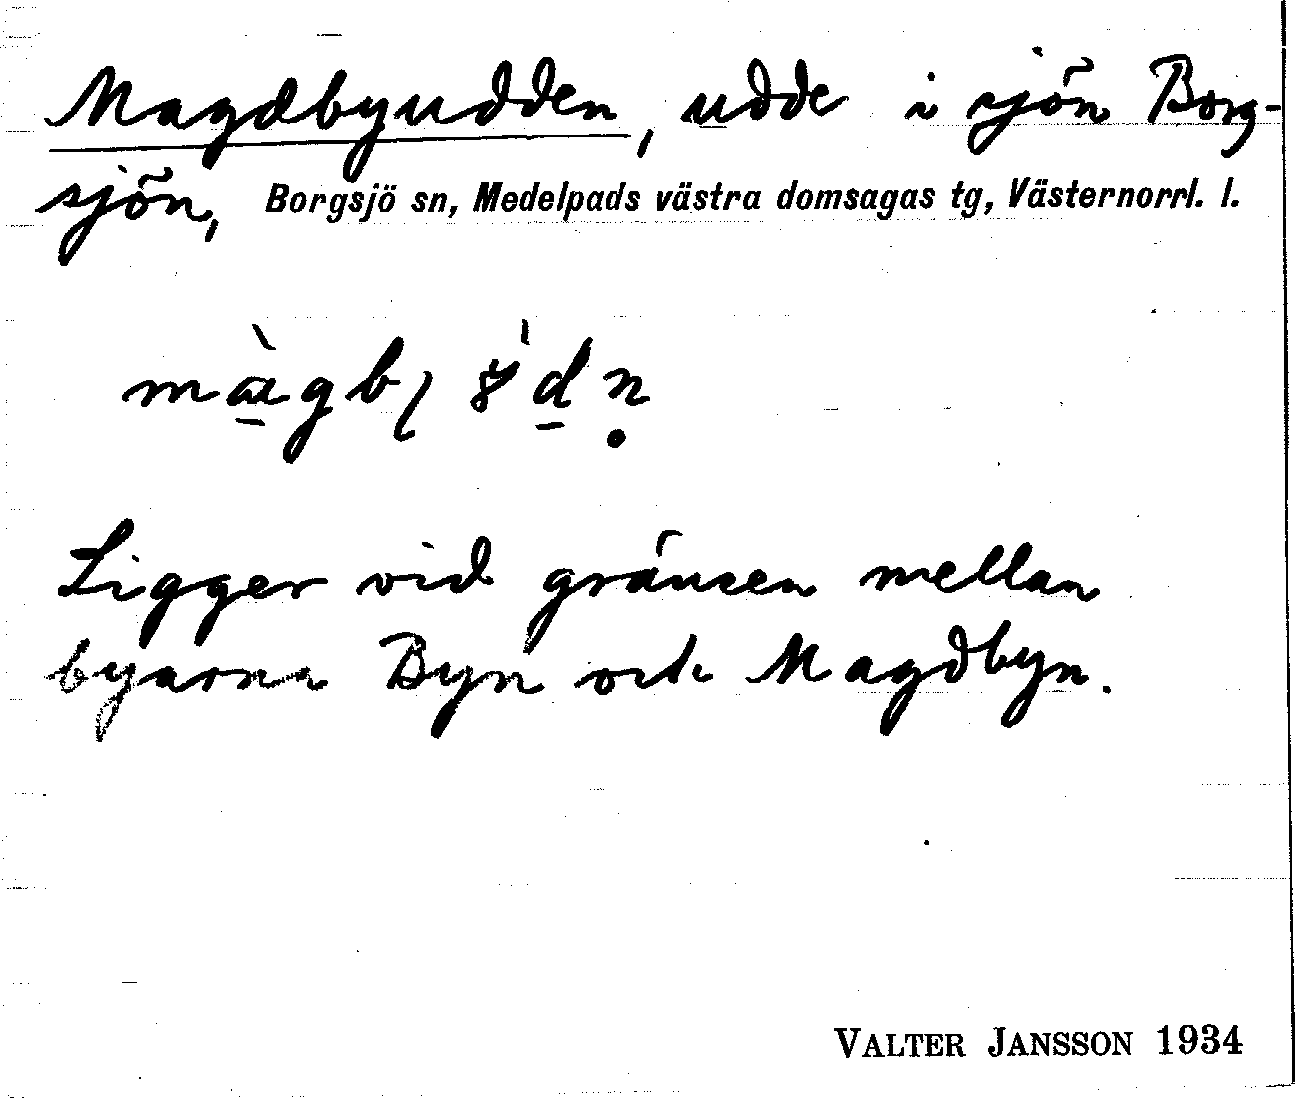 Magdbyudden, udde i sjön Borg-
sjön, Borgsjö sn, Medelpads västra domsagas tg, Västernorrl. l.
Ligger vid gränsen mellan
byarna Byn och Magdbyn.
VALTER JANSSON 1934